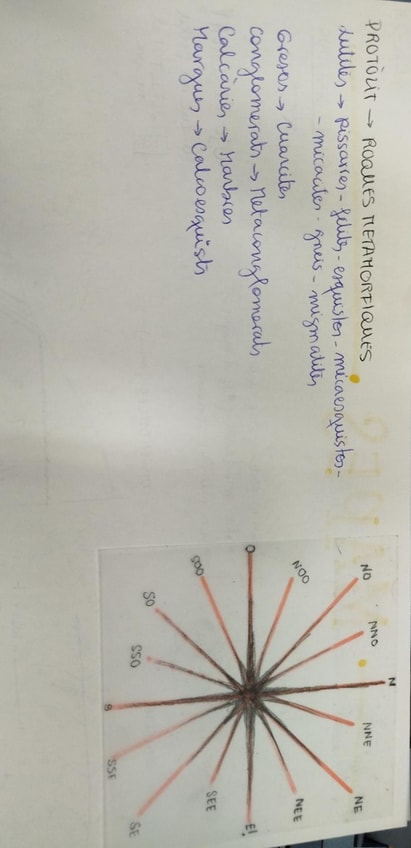 PROTÒLIT → ROQUES METAMÒRFIQUES
Lutites → pissarres - fil·lites - esquistos - micaesquistos -
- micacites - gneis - migmatites
Gresos → Cuarcites
Conglomerats → Metaconglomerats
Calcàries → Marbres
Margues → Calcoesquists
N
NNE
NE
NEE
E
SEE
SE
SSE
S
SSO
SO
SOO
O
NOO
NO
NNO